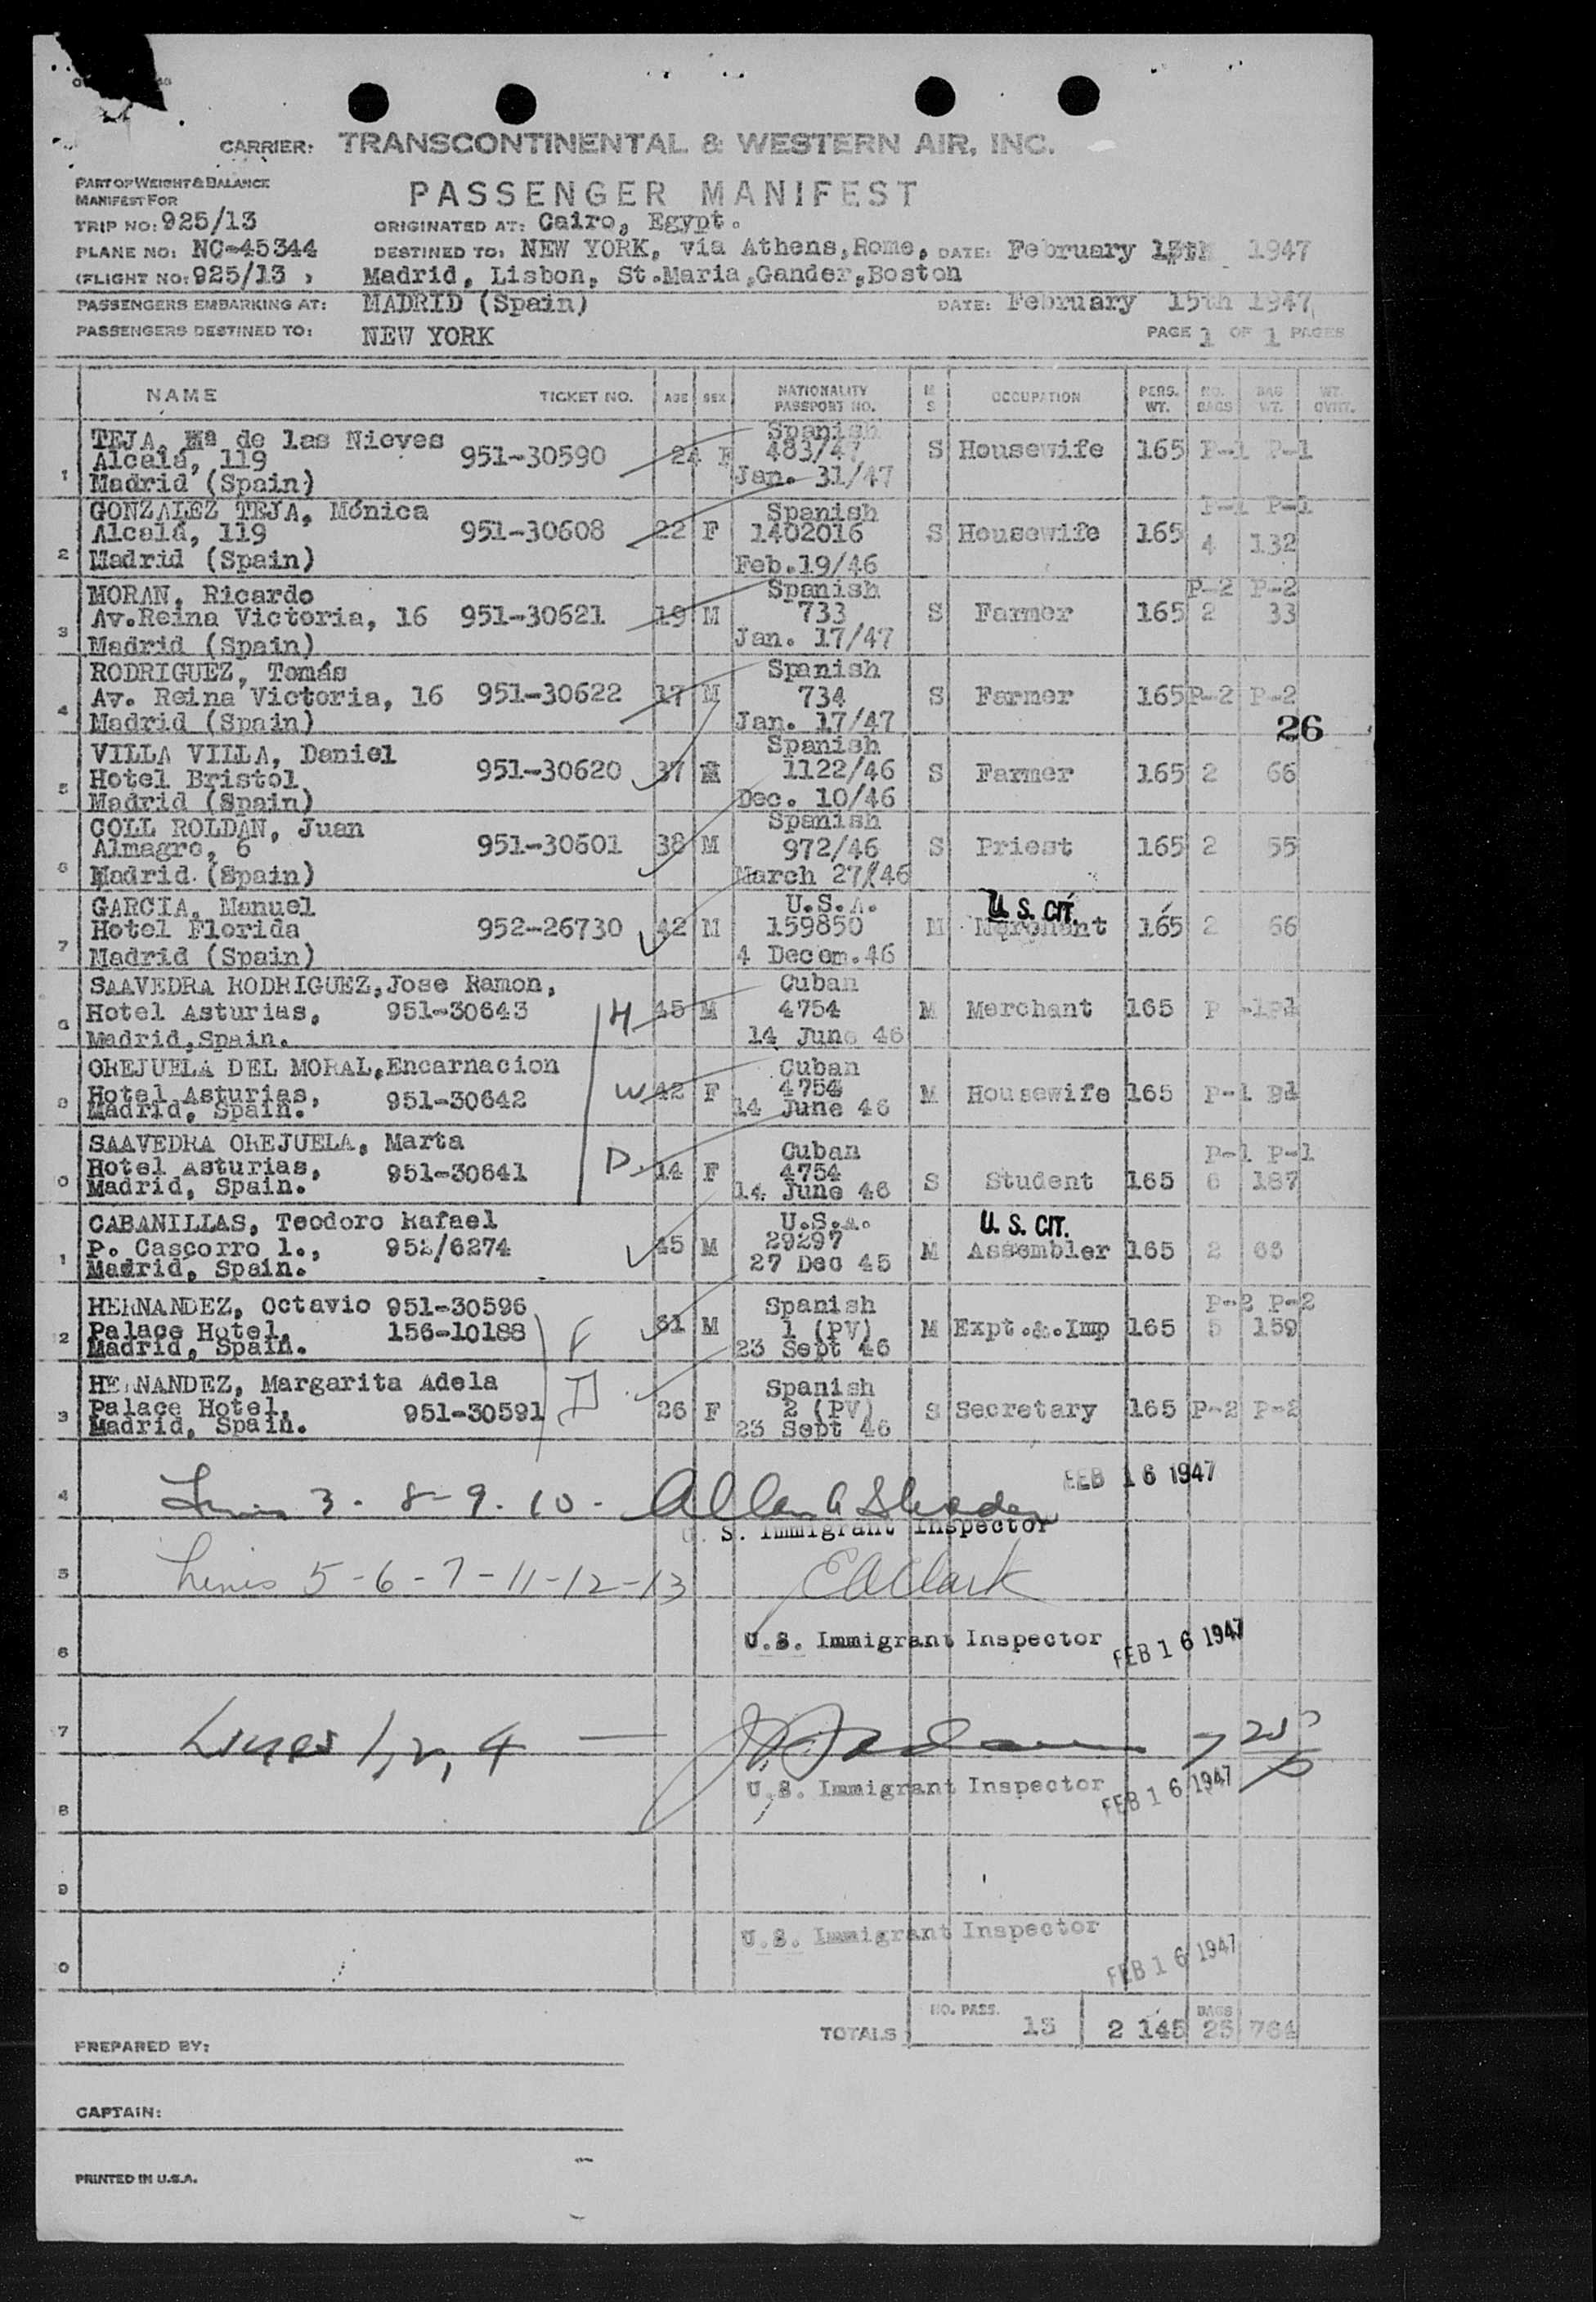 CARRIER: TRANSCONTINENTAL & WESTERN AIR, INC.
PART OF WEIGHT & BALANCE
MANIFEST FOR
PASSENGER MANIFEST
TRIP NO: 925/13 ORIGINATED AT: Cairo, Egypt.
PLANE NO: NC-45344 DESTINED TO: NEW YORK, via Athens,Rome, DATE: February 15th 1947
(FLIGHT NO: 925/13 ) Madrid, Lisbon, St.Maria,Gander,Boston
PASSENGERS EMBARKING AT: MADRID (Spain) DATE: February 15th 1947
PASSENGERS DESTINED TO: NEW YORK PAGE 1 OF 1 PAGES
NAME TICKET NO. AGE SEX NATIONALITY PASSPORT NO. M S OCCUPATION PERS. WT. NO. BAGS BAG WT. WT. OVHT.
TEJA, Mª de las Nieves Spanish
Alcalá, 119 951-30590 24 F 483/47 S Housewife 165 P-1 P-1
1 Madrid (Spain) Jan. 31/47
GONZALEZ TEJA, Mónica Spanish P-1 P-1
Alcalá, 119 951-30608 22 F 1402016 S Housewife 165 4 132
2 Madrid (Spain) Feb.19/46
MORAN, Ricardo Spanish P-2 P-2
Av.Reina Victoria, 16 951-30621 19 M 733 S Farmer 165 2 33
3 Madrid (Spain) Jan. 17/47
RODRIGUEZ, Tomás Spanish
Av. Reina Victoria, 16 951-30622 17 M 734 S Farmer 165 P-2 P-2
4 Madrid (Spain) Jan. 17/47
26
VILLA VILLA, Daniel Spanish
Hotel Bristol 951-30620 37 M 1122/46 S Farmer 165 2 66
5 Madrid (Spain) Dec. 10/46
COLL ROLDAN, Juan Spanish
Almagro, 6 951-30601 38 M 972/46 S Priest 165 2 55
6 Madrid (Spain) March 27/46
GARCIA, Manuel U.S.A. U. S. CIT.
Hotel Florida 952-26730 42 M 159850 M Merchant 165 2 66
7 Madrid (Spain) 4 Decem.46
SAAVEDRA RODRIGUEZ,Jose Ramon, Cuban
Hotel Asturias, 951-30643 H 45 M 4754 M Merchant 165 P
8 Madrid,Spain. 14 June 46
OREJUELA DEL MORAL,Encarnacion Cuban
9 Hotel Asturias, 951-30642 W 42 F 4754 M Housewife 165 P-1
Madrid, Spain. 14 June 46
SAAVEDRA OREJUELA, Marta Cuban P-1 P-1
Hotel Asturias, 951-30641 D. 14 F 4754 S Student 165 6 187
0 Madrid, Spain. 14 June 46
CABANILLAS, Teodoro Rafael U.S.A. U. S. CIT.
P. Cascorro 1., 952/6274 45 M 29297 M Assembler 165 2 66
1 Madrid, Spain. 27 Dec 45
HERNANDEZ, Octavio 951-30596 Spanish P-2 P-2
2 Palace Hotel, 156-10188 F 61 M 1 (PV) M Expt.&.Imp 165 5 159
Madrid, Spain. 23 Sept 46
HERNANDEZ, Margarita Adela Spanish
3 Palace Hotel, 951-30591 D 26 F 2 (PV) S Secretary 165 P-2 P-2
Madrid, Spain. 23 Sept 46
FEB 16 1947
4 Lines 3 - 8-9-10 -
U. S. Immigrant Inspector
5 Lines 5-6-7-11-12-13 E A Clark
6 U.S. Immigrant Inspector FEB 16 1947
7 Lines 1, 2, 4 —
8 U.S. Immigrant Inspector FEB 16 1947
9
U.S. Immigrant Inspector
0 FEB 16 1947
TOTALS NO. PASS. 13 2 145 BAGS 25 764
PREPARED BY:
CAPTAIN:
PRINTED IN U.S.A.